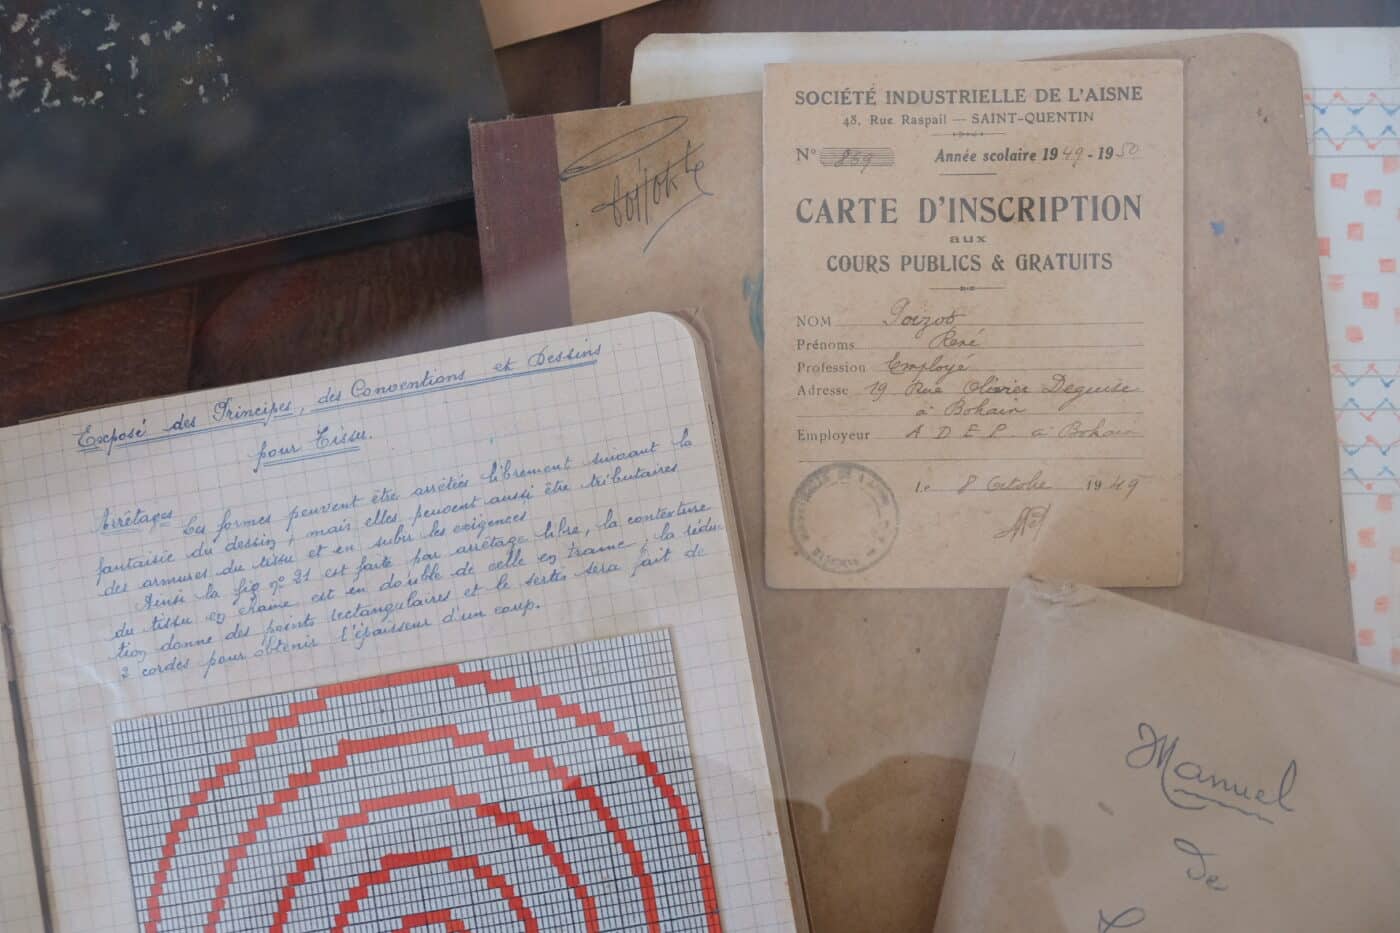 SOCIÉTÉ INDUSTRIELLE DE L'AISNE
48, Rue Raspail — SAINT-QUENTIN
N° 869 Année scolaire 1949-1950
CARTE D'INSCRIPTION
aux
COURS PUBLICS & GRATUITS
NOM Poizot
Prénoms René
Profession Employé
Adresse 19 Rue Olivier Deguise
à Bohain
Employeur A D E P. à Bohain
le 8 Octobre 1949
Exposé des Principes, des Conventions et Dessins
pour Tissu.
Arrêtages
Les formes peuvent être arrêtées librement suivant la
fantaisie du dessin, mais elles peuvent aussi être tributaires
des armures du tissu et en subir les exigences
Ainsi la fig n° 21 est faite par arrêtage libre, la contexture
du tissu en chaîne est en double de celle en trame, la réduc
tion donne des points rectangulaires et le sertis sera fait de
2 cordes pour obtenir l'épaisseur d'un coup.
Manuel
De